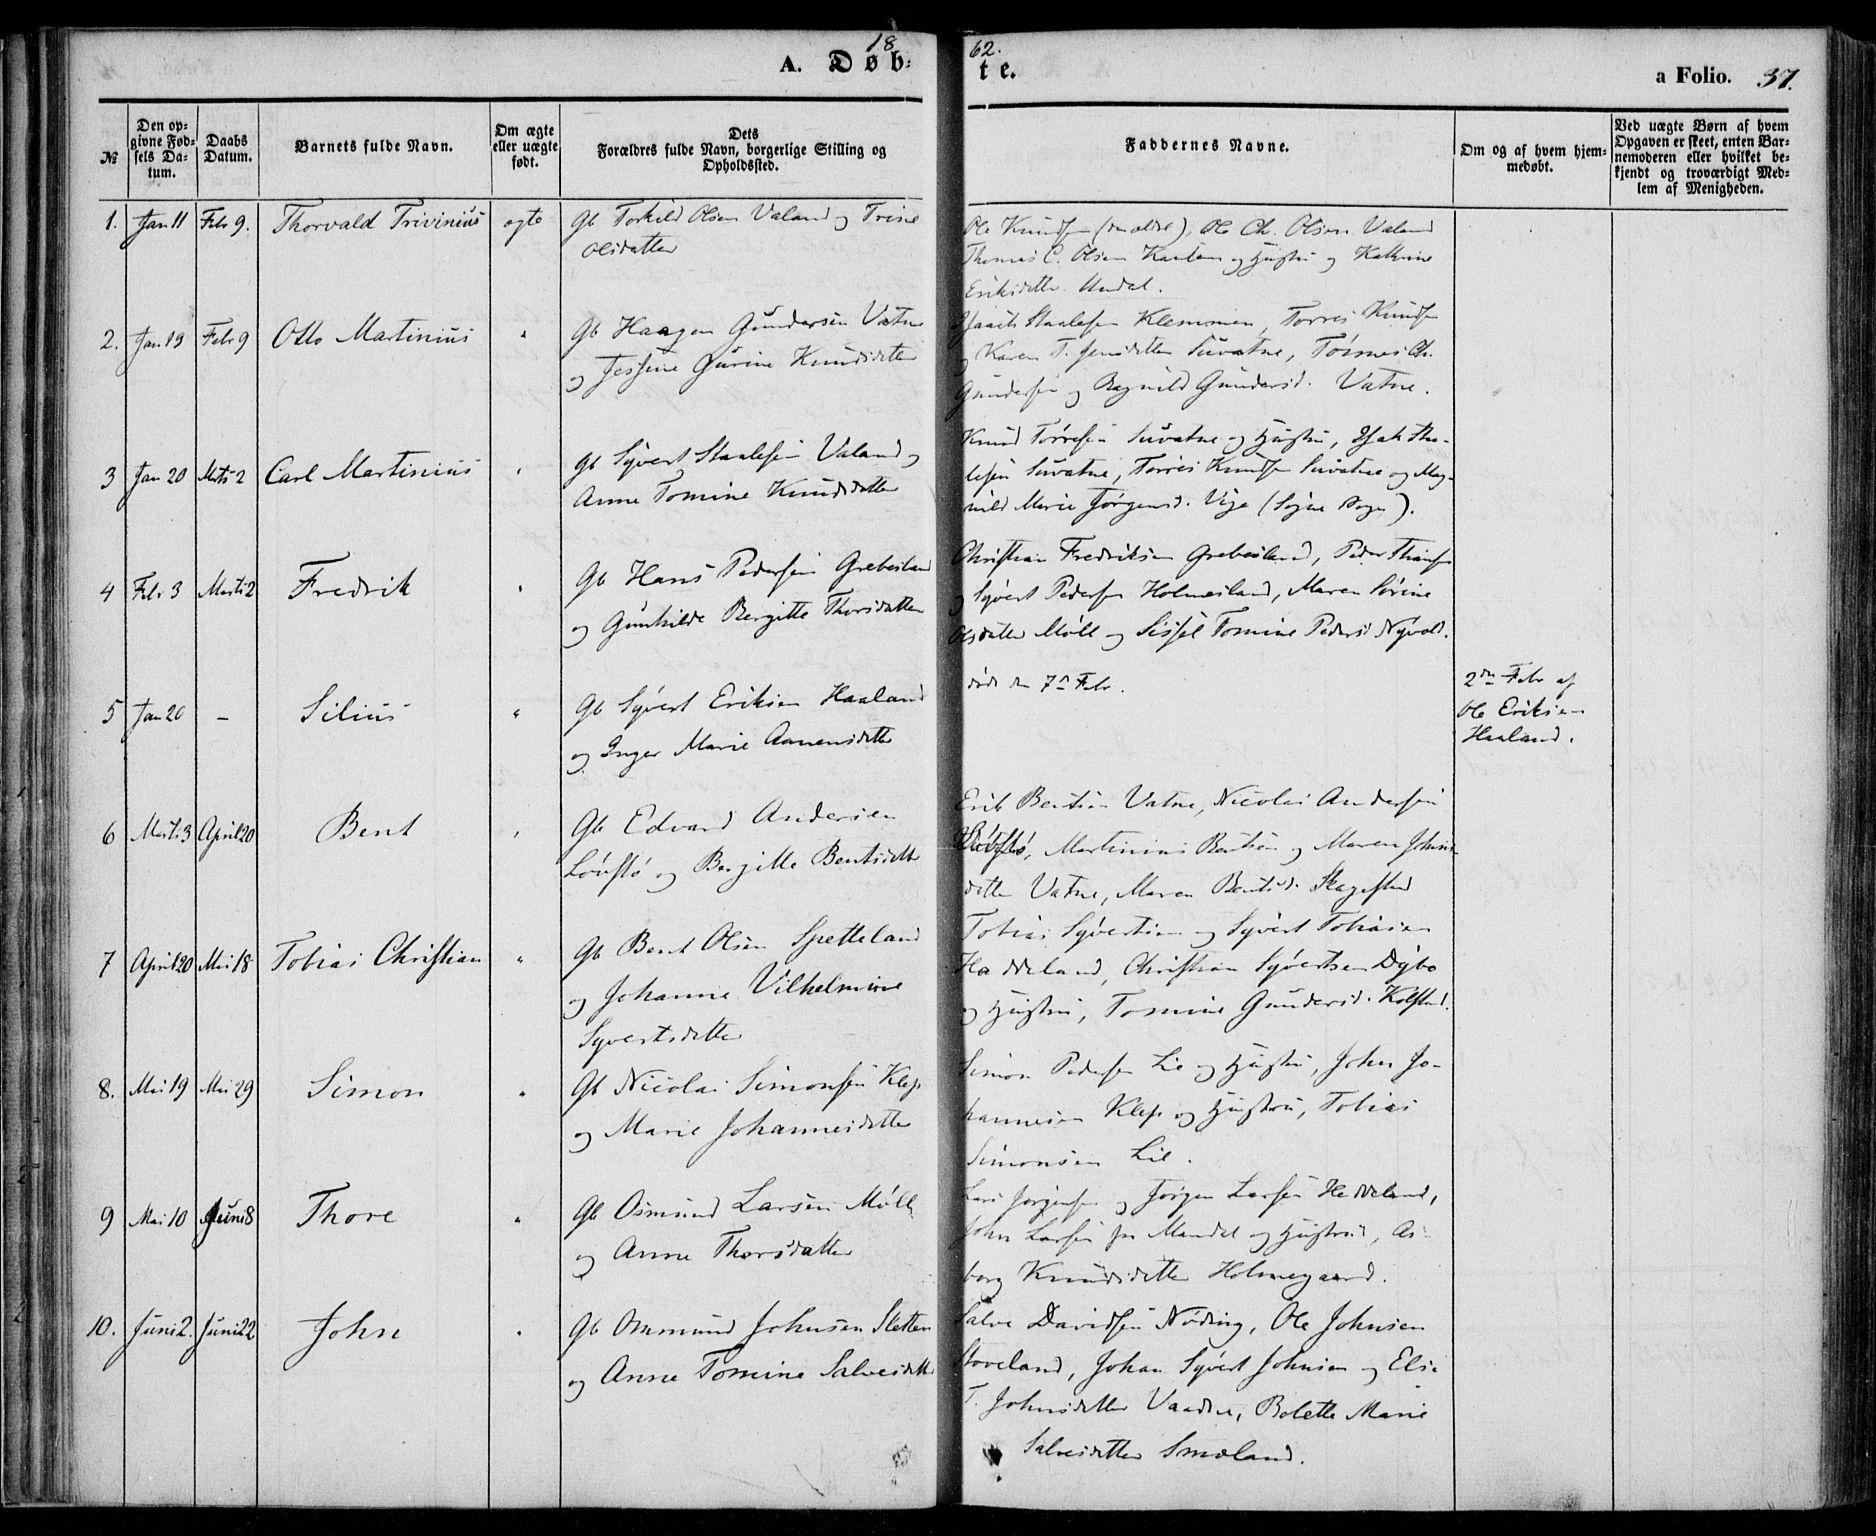 1862.
A. Døbte.
a Folio. 37.
№
Den opgivne Fødsels Datum.
Daabs Datum.
Barnets fulde Navn.
Om ægte eller uægte født.
Dets Forældres fulde Navn, borgerlige Stilling og Opholdssted.
Faddernes Navne.
Om og af hvem hjemmedøbt.
Ved uægte Børn af hvem Opgaven er skeet, enten Barnemoderen eller hvilket bekjendt og troværdigt Medlem af Menigheden.
1. Jan 11 Febr 9. Thorvald Trivinius ægte
Gb Torkild Olsen Valand og Trine
Olsdatter
Ole Knudsen Ole Ch. Olsen Valand
Thomas C. Olsen og Hustru og Kathrine
Eriksdatter
2. Jan 19 Febr 9 Otto Martinius "
Gb Haagen Gundersen Vatne
og Jessine Gurine Knudsdatter
Isaach Staalesen Klemmen, Torres Knudsen
og Karen T. Jensdatter Suvatne, Tønnes Ch.
Gundersen og Ragnild Gundersd. Vatne.
3 Jan 20 Marts 2 Carl Martinius "
Gb Syvert Staalesen Valand og
Anne Tomine Knudsdatter
Knud Torresen Suvatne og Hustru, Isak Staa-
lesen Suvatne, Torres Knudsen Suvatne og Mag-
nild Marie Jørgensd. Vige (Søgne Sogn).
4 Febr 3 Marts 2 Fredrik "
Gb Hans Pedersen Grebesland
og Gunhilde Bergitte Thorsdatter
Christian Fredriksen Grebesland, Peder
og Syvert Pedersen Holmesland, Maren Sørine
Olsdatter Møll og Sissel Tomine Pedersd Nyvold.
5 Jan 20 – Silius "
Gb Syvert Eriksen Haaland
og Inger Marie Aanensdatter
død d 7de Febr.
2den Febr af
Ole Eriksen
Haaland.
6 Marts 3 April 20 Bent "
Gb Edvard Andersen
Løvslø og Birgitte Bentsdatt
Erik Bentsen Vatne, Nicolai Andersen
Løvslø, Martinius Bentsen og Maren Johns-
datter Vatne, Maren Bentsd. Skagestad
7 April 20 Mai 18 Tobias Christian "
Gb Bent Olsen Spetteland
og Johanne Vilhelmine
Syvertsdatter
Tobias Syvertsen og Syvert Tobiasen
Haddeland, Christian Syvertsen Dybo
og Hustru, Tomine Gundersd. Kolstad.
8. Mai 19 Mai 29 Simon "
Gb Nicolai Simonsen Klep
og Marie Johannesdatter
Simon Pedersen Lie og Hustru, John Jo-
hannesen Klep og Hustru, Tobias
Simonsen Lie.
9 Mai 10 Juni 8 Thore "
Gb Osmund Larsen Møll
og Anne Thorsdatter
Lars Jørgensen og Jørgen Larsen Heddeland,
John Larsen fra Mandal og Hustru, As-
borg Knudsdatter Holmegaard.
10. Juni 2. Juni 22 John "
Gb Ommund Johnsen Sletten
og Anne Tomine Salvesdatt
Salve Davidsen Nøding, Ole Johnsen
Stoveland, Johan Syvert Johnsen og Else
T. Johnsdatter Vaadne, Bolette Marie
Salvesdatter Smæland.